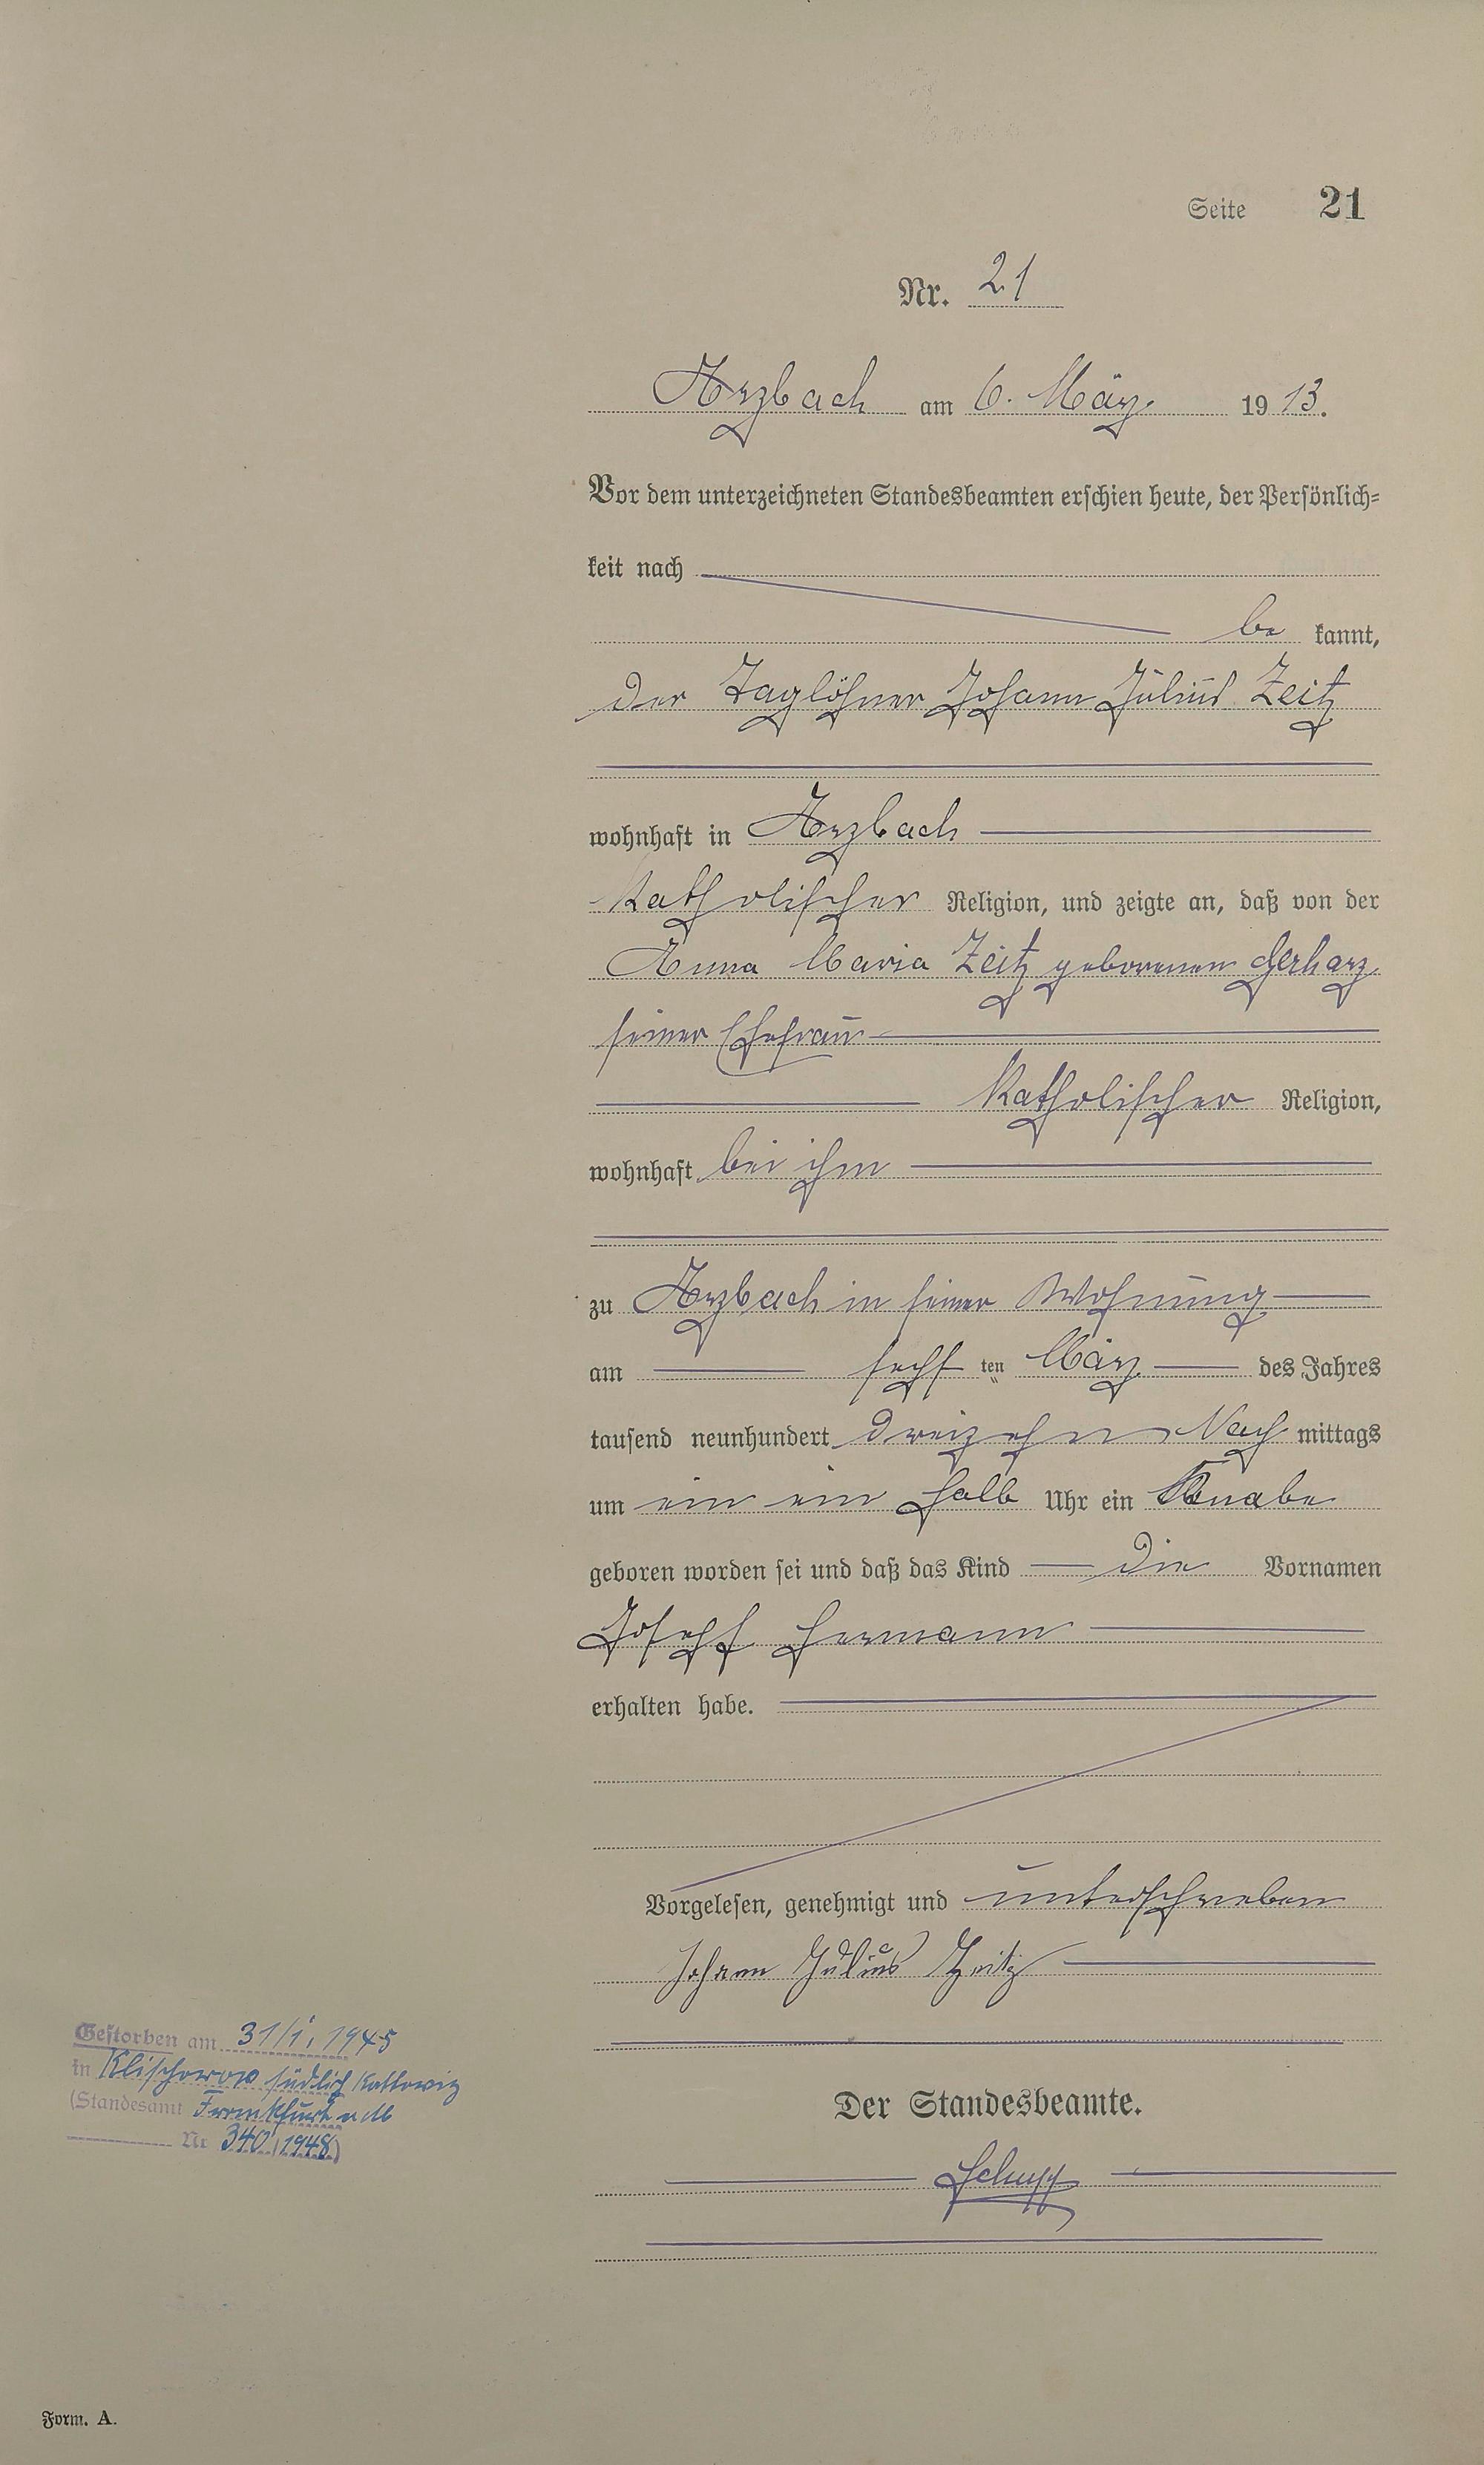 Seite 21
Nr. 21
Arzbach am 6. März 1913.
Vor dem unterzeichneten Standesbeamten erschien heute, der Persönlich-
keit nach
be kannt,
der Taglöhner Johann Julius Zeitz
wohnhaft in Arzbach
katholischer Religion, und zeigte an, daß von der
Anna Maria Zeitz geborenen Gerharz
seiner Ehefrau
katholischer Religion,
wohnhaft bei ihm
zu Arzbach in seiner Wohnung
am sechs ten März des Jahres
tausend neunhundert dreizehn Nach mittags
um ein ein halb Uhr ein Knabe
geboren worden sei und daß das Kind die Vornamen
Joseph Hermann
erhalten habe.
Vorgelesen, genehmigt und unterschrieben
Johann Julius Zeitz
Gestorben am 31/1. 1945
in südlich Kattowitz
(Standesamt Frankfurt a M
Nr 340/1948)
Der Standesbeamte.
Schupp
Form. A.